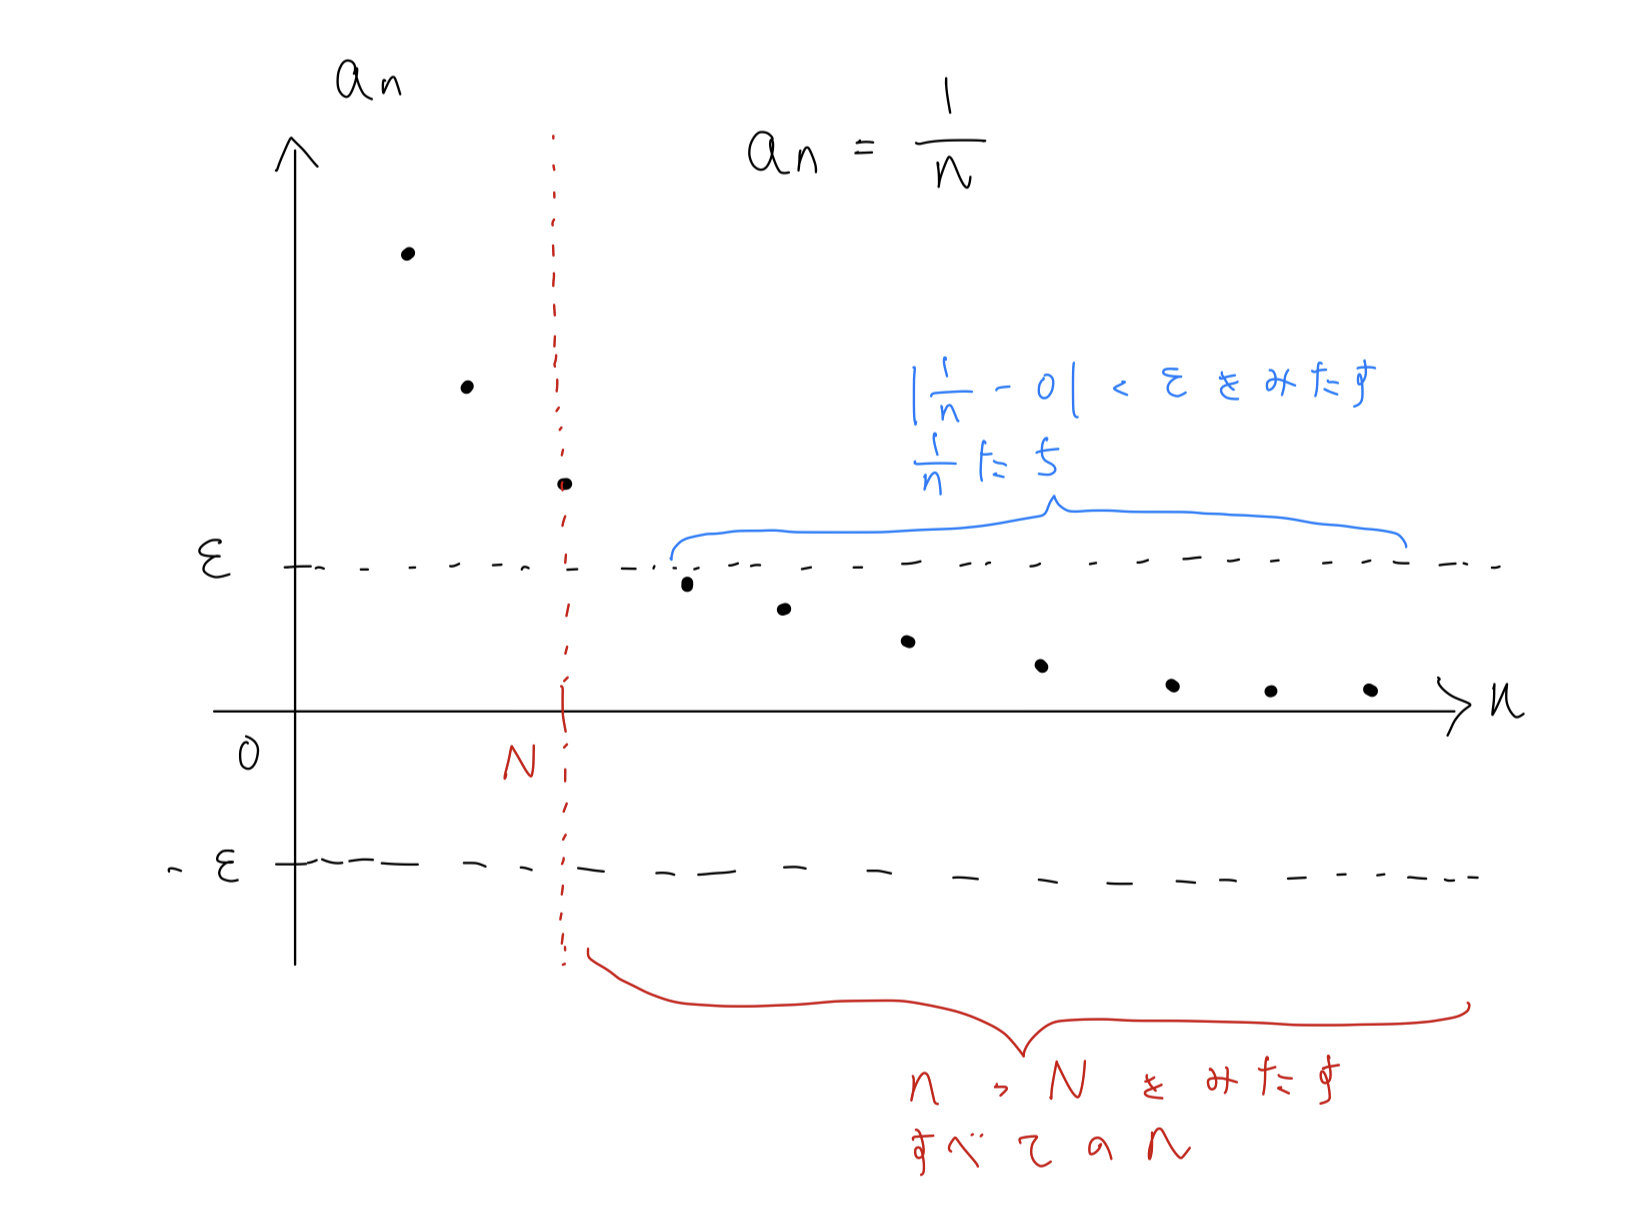 an
an = 1/n
|1/n - 0| < ε をみたす
1/n たち
ε
n
0
N
- ε
n > N をみたす
すべての n